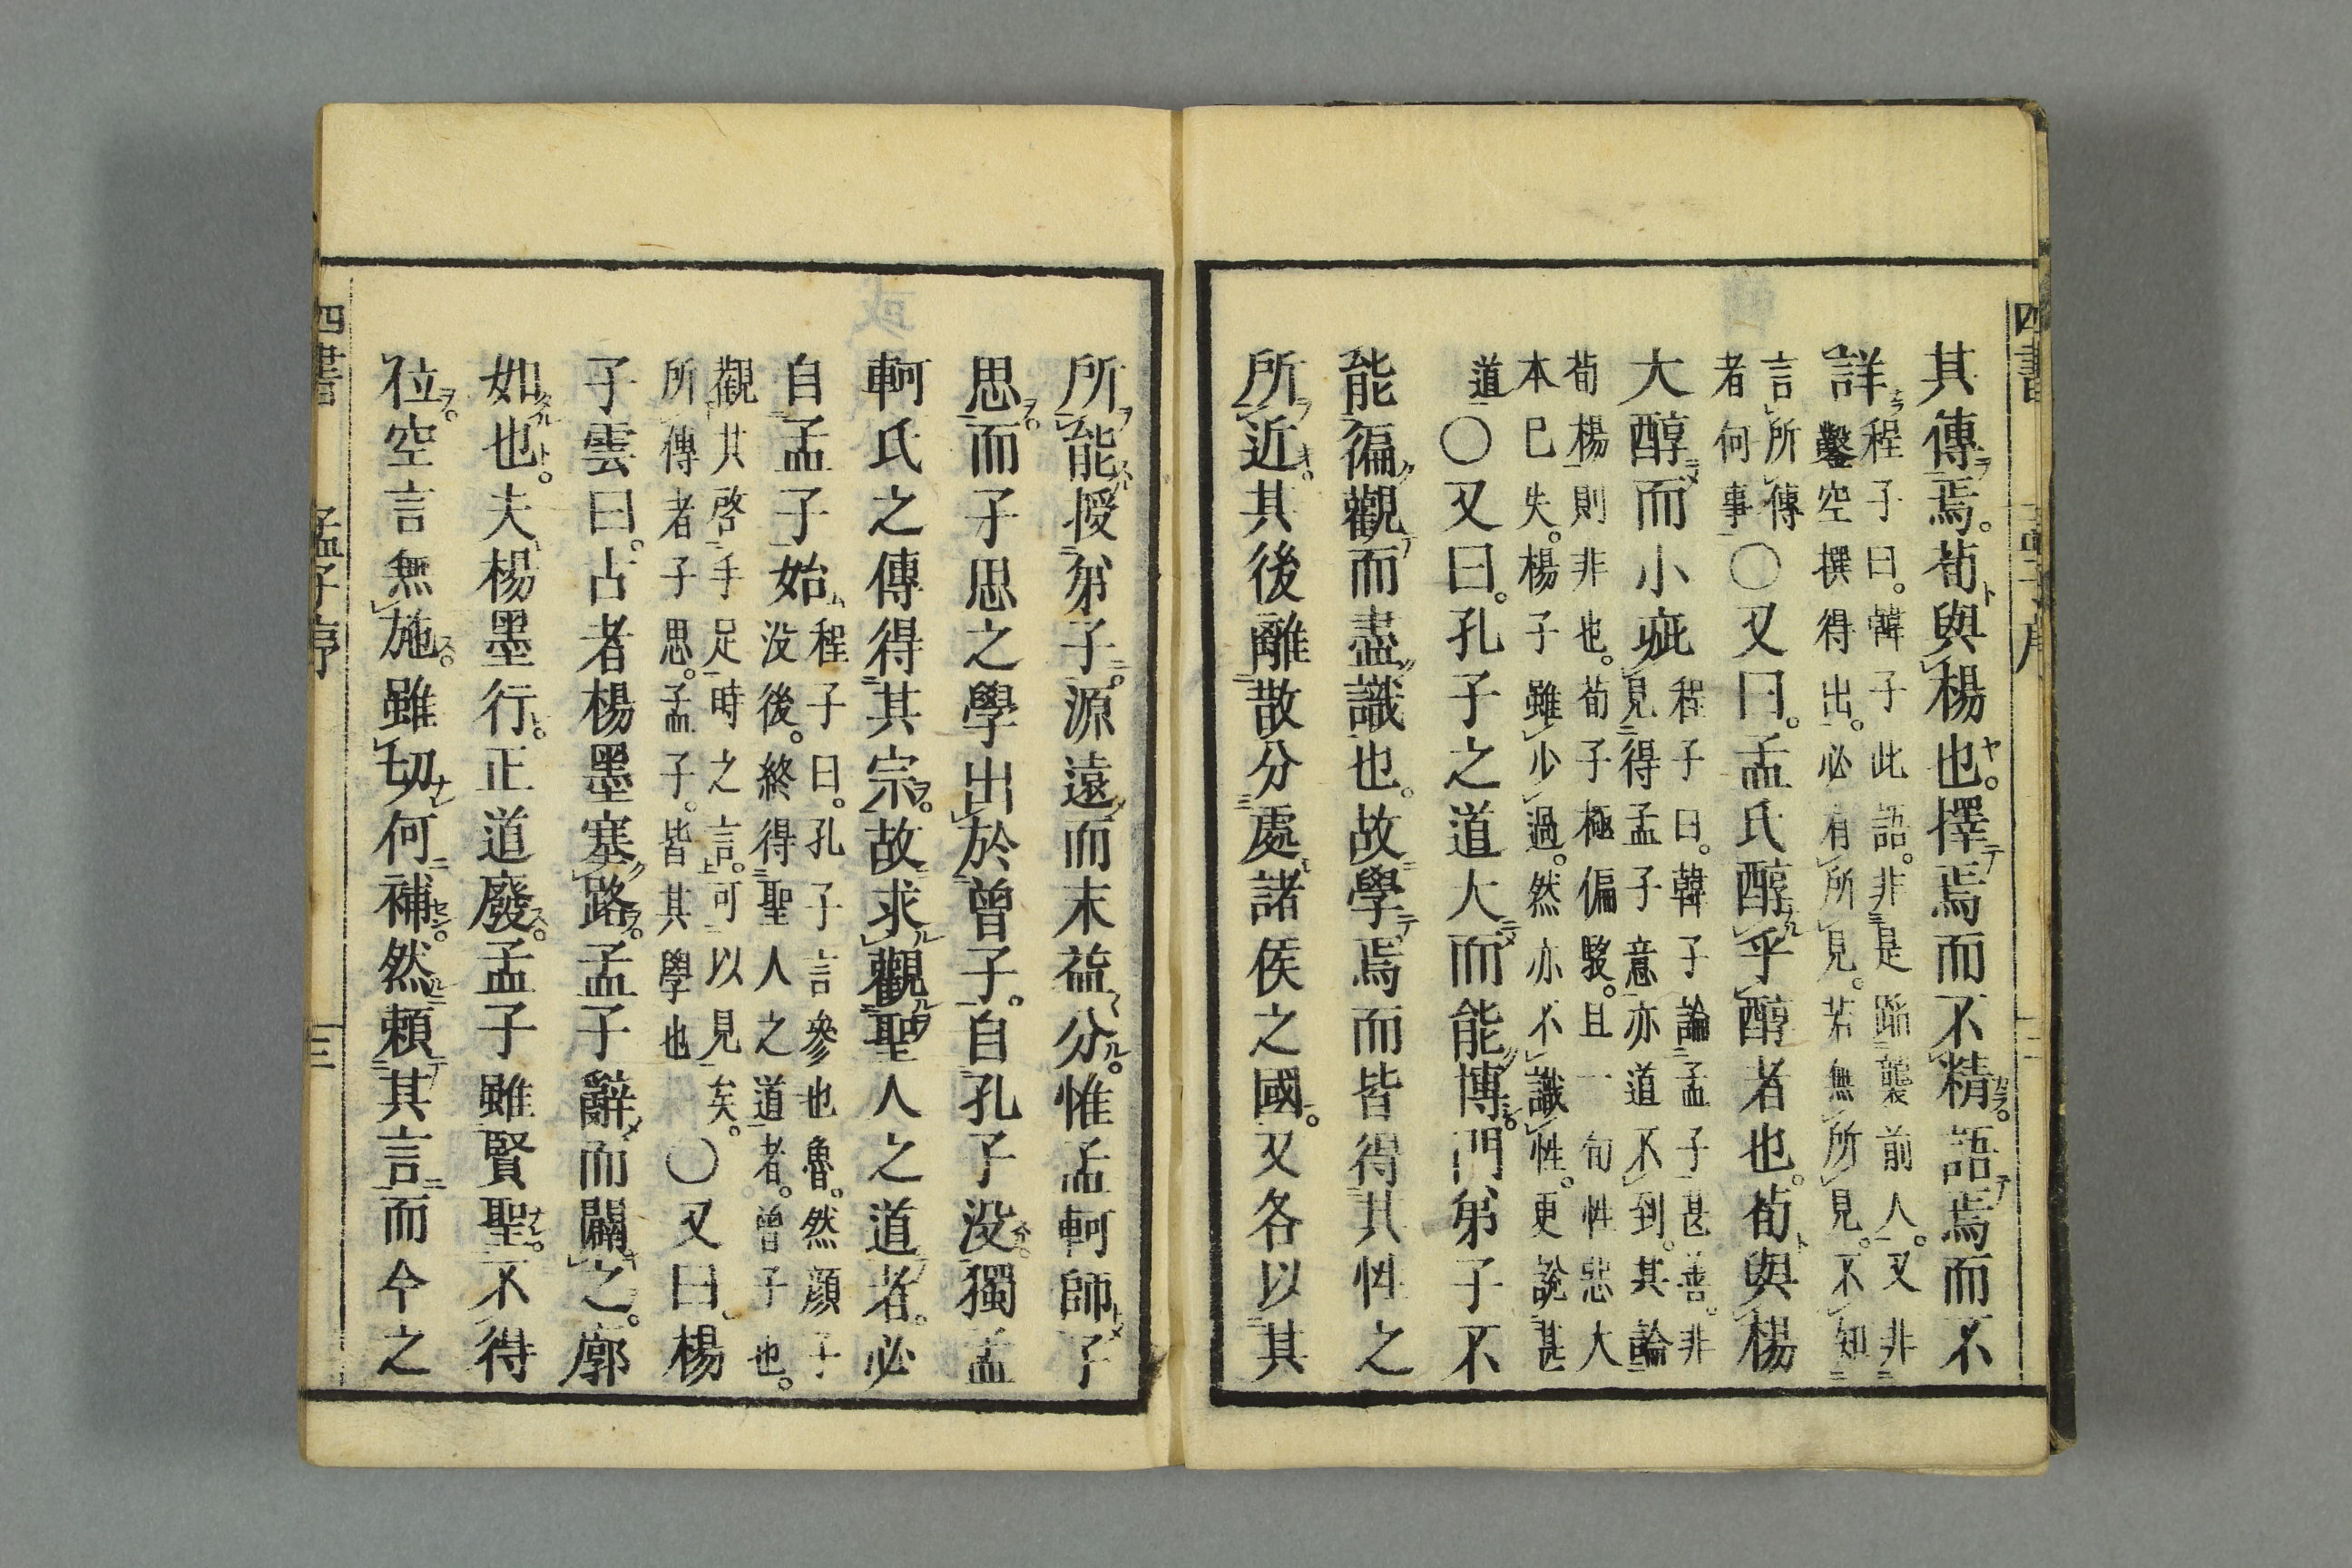 四書 孟子序 二
其傳焉。荀與楊也。擇焉而不精。語焉而不
詳
程子曰。韓子此語。非是蹈襲前人。又非
鑿空撰得出。必有所見。若無所見。不知
言所傳
者何事
○又曰。孟氏醇乎醇者也。荀與楊
大醇而小疵
程子曰。韓子論孟子甚善。非
見得孟子意亦道不到。其論
荀楊則非也。荀子極偏駁。且一句性惡大
本已失。楊子雖少過。然亦不識性。更說甚
道
○又曰。孔子之道大而能博。門弟子不
能徧觀而盡識也。故學焉而皆得其性之
所近。其後離散分處諸侯之國。又各以其
所能授弟子。源遠而末益分。惟孟軻師子
思。而子思之學出於曾子。自孔子没。獨孟
軻氏之傳得其宗。故求觀聖人之道者。必
自孟子始
程子曰。孔子言參也魯。然顏子
没後。終得聖人之道者。曾子也。
觀其啓手足時之言。可以見矣。
所傳者子思。孟子。皆其學也
○又曰。楊
子雲曰。古者楊墨塞路。孟子辭而闢之。廓
如也。夫楊墨行。正道廢。孟子雖賢聖。不得
位。空言無施。雖切何補。然頼其言而今之
四書 孟子序 三